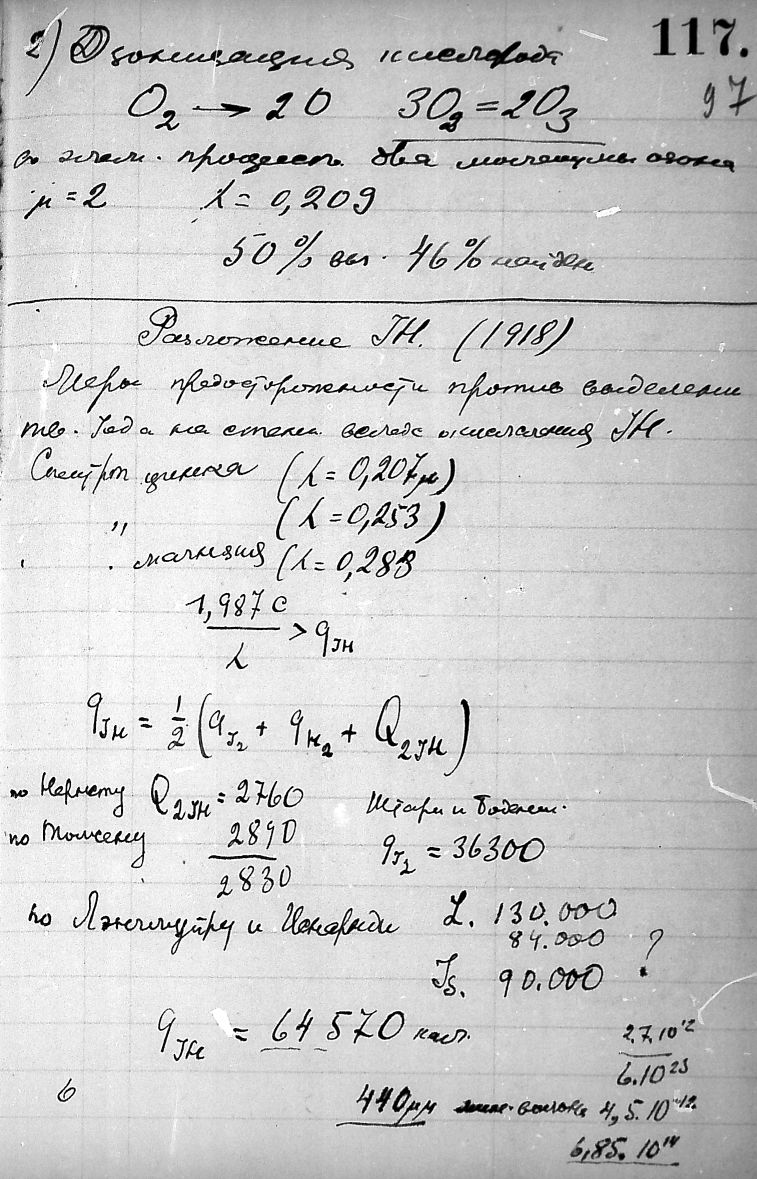 117.
97
2) Озонизация кислорода
O₂ → 2O 3O₂ = 2O₃
по элем. процессъ два молекулы озона
μ = 2 λ = 0,209
50% выч. 46% найден
Разложение JH. (1918)
Меры предосторожности против выделени
тв. Iода на стенк. вследс окисления JH.
Спектръ цинка (λ = 0,207μ)
" (λ = 0,253)
" магнезия (λ = 0,283
1,987 c / λ > q_JH
q_JH = 1/2 (q_J₂ + q_H₂ + Q_2JH)
по Нернсту Q_2JH = 2760 Штарк и Боденш.
по Томсену 2890 q_J₂ = 36300
2830
по Лэнгмуиру и Иснарди L. 130.000
84.000 ?
Is. 90.000
q_JH = 64570 кал.
2,7.10¹²
6.10²³
6 440μμ длин. волна 4,5.10⁻¹²
6,85.10¹⁴